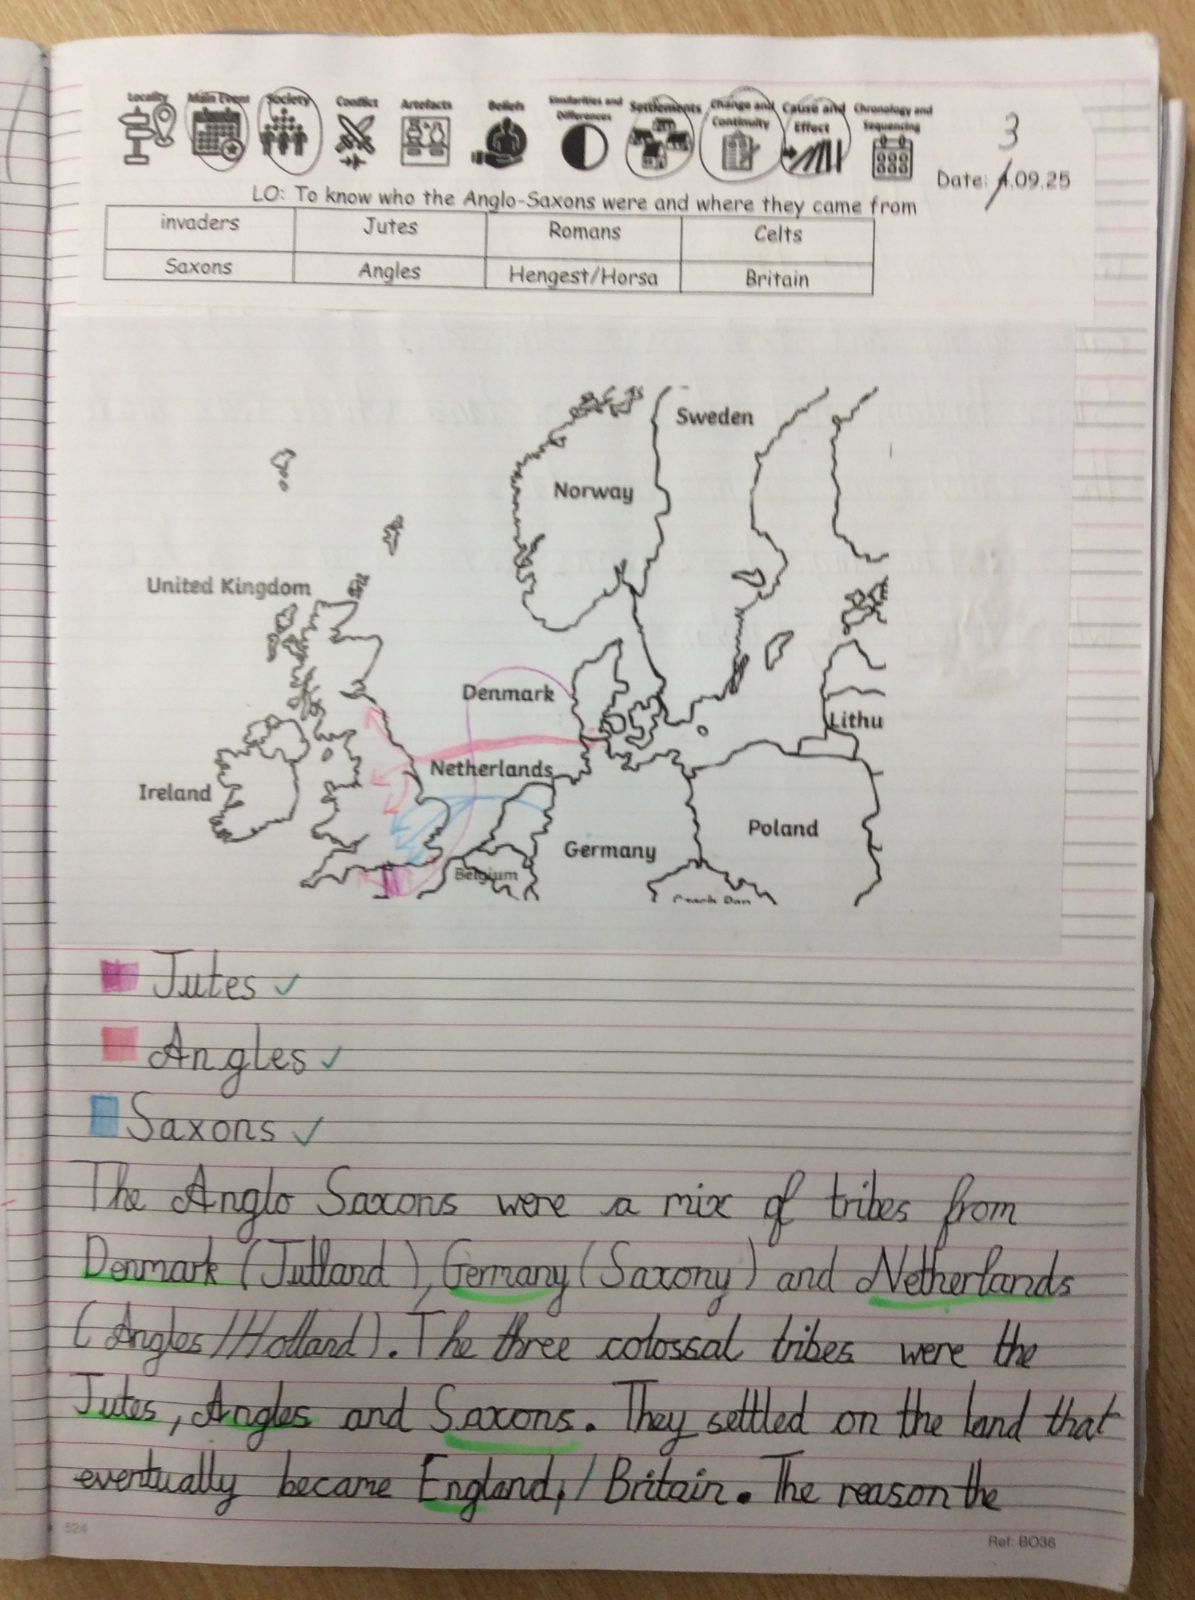 Locality Main Event Society Conflict Artefacts Beliefs Similarities and Differences Settlements Change and Continuity Cause and Effect Chronology and Sequencing
3
Date: 4.09.25
LO: To know who the Anglo-Saxons were and where they came from
invaders Jutes Romans Celts
Saxons Angles Hengest/Horsa Britain
Sweden
Norway
United Kingdom
Denmark
Lithu
Netherlands
Ireland
Poland
Germany
Belgium
Jutes ✓
Angles ✓
Saxons ✓
The Anglo Saxons were a mix of tribes from
Denmark (Jutland), Germany (Saxony) and Netherlands
(Angles/Holland). The three colossal tribes were the
Jutes, Angles and Saxons. They settled on the land that
eventually became England, / Britain. The reason the
524
Ref: BO36